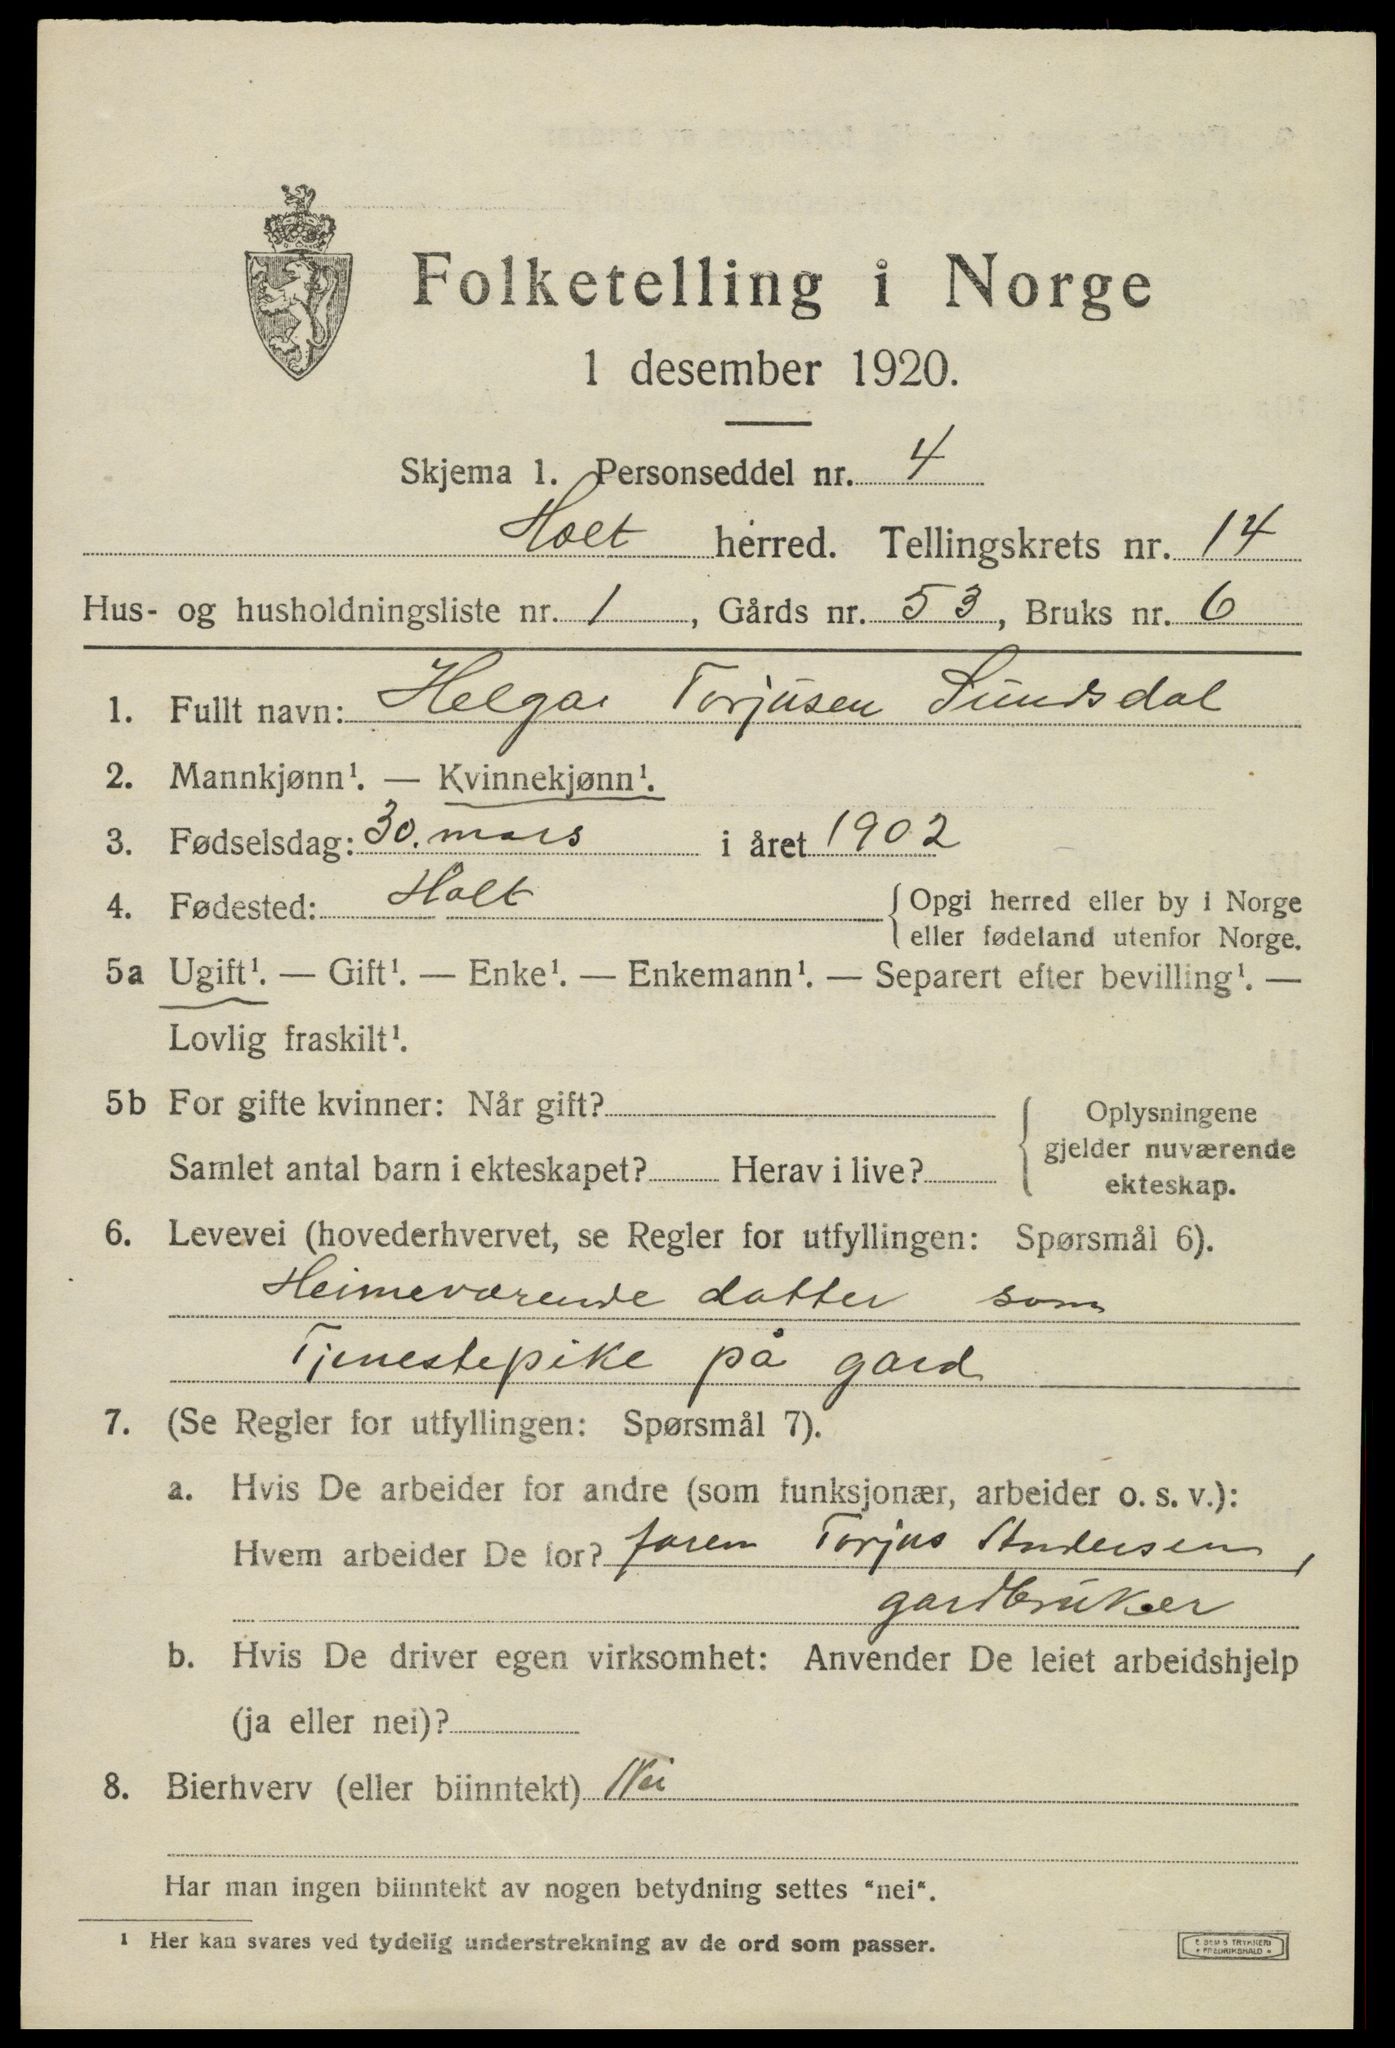 Folketelling i Norge
1 desember 1920.
Skjema 1. Personseddel nr. 4
Holt herred. Tellingskrets nr. 14
Hus- og husholdningsliste nr. 1, Gårds nr. 53, Bruks nr. 6
1. Fullt navn: Helga Torjusen Sundsdal
2. Mannkjønn¹. — Kvinnekjønn¹.
3. Fødselsdag: 30. mars i året 1902
4. Fødested: Holt {Opgi herred eller by i Norge
eller fødeland utenfor Norge.
5a Ugift¹. — Gift¹. — Enke¹. — Enkemann¹. — Separert efter bevilling¹. —
Lovlig fraskilt¹.
5b For gifte kvinner: Når gift? Oplysningene
gjelder nuværende
Samlet antal barn i ekteskapet? Herav i live?
ekteskap.
6. Levevei (hovederhvervet, se Regler for utfyllingen: Spørsmål 6).
Heimeværende datter som
Tjenestepike på gard
7. (Se Regler for utfyllingen: Spørsmål 7).
a. Hvis De arbeider for andre (som funksjonær, arbeider o. s. v.):
Hvem arbeider De for? faren Torjus Andersen,
gardbruker
b. Hvis De driver egen virksomhet: Anvender De leiet arbeidshjelp
(ja eller nei)?
8. Bierhverv (eller biinntekt) Nei
Har man ingen biinntekt av nogen betydning settes "nei".
¹ Her kan svares ved tydelig understrekning av de ord som passer.
E. SEM'S TRYKKERI
• FREDRIKSHALD •